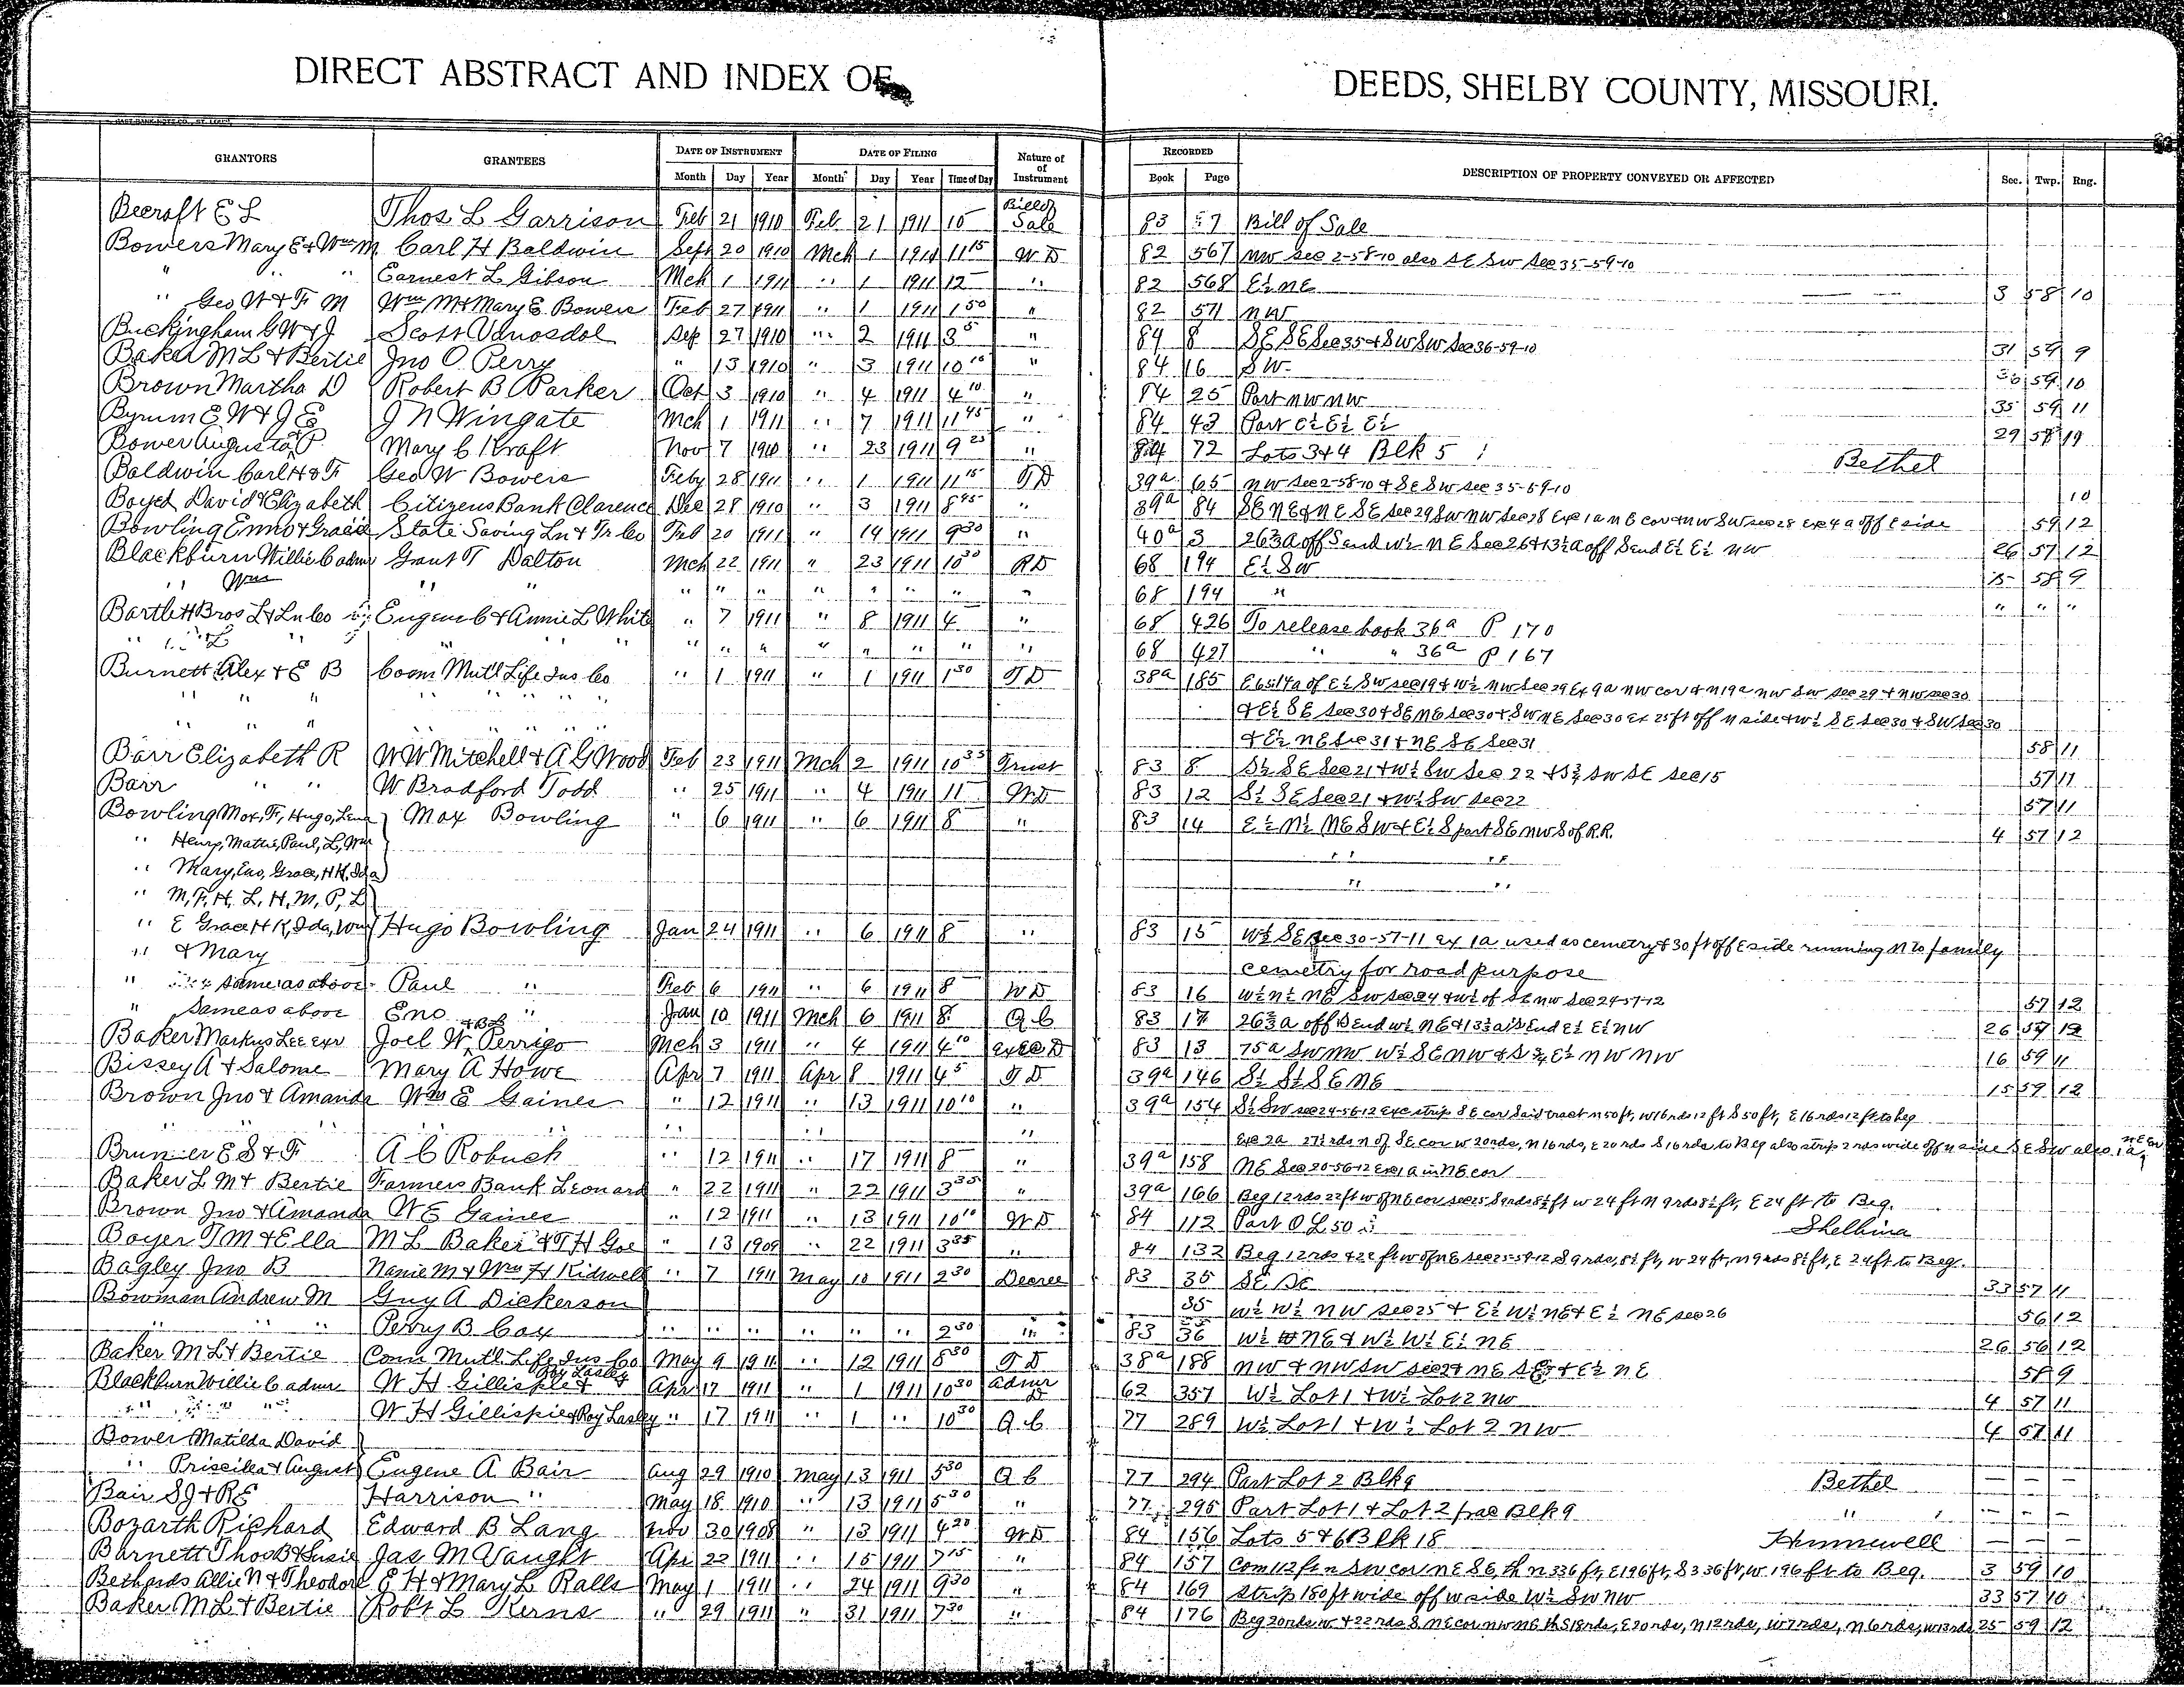 DIRECT ABSTRACT AND INDEX OF DEEDS, SHELBY COUNTY, MISSOURI.
GRANTORS GRANTEES DATE OF INSTRUMENT DATE OF FILING Nature of of Instrument RECORDED DESCRIPTION OF PROPERTY CONVEYED OR AFFECTED Sec. Twp. Rng.
Month Day Year Month Day Year Time of Day Book Page
Becraft E L Thos L Garrison Feb 21 1910 Feb 21 1911 10 Bill of Sale 83 57 Bill of Sale
Bowers Mary E & Wm M Carl H Baldwin Sept 20 1910 Mch 1 1911 11 15 W D 82 567 NW Sec 2-58-10 also SE SW Sec 35-59-10
" " Earnest L Gibson Mch 1 1911 " 1 1911 12 " 82 568 E½ NE 3 58 10
" Geo W & F M Wm M & Mary E Bowers Feb 27 1911 " 1 1911 1 50 " 82 571 NW
Buckingham G W & J Scott Vanosdol Sep 27 1910 " 2 1911 3 5 " 84 8 SE SE Sec 35 & SW SW Sec 36-59-10 31 59 9
Baker M L & Bertie Jno O Perry " 13 1910 " 3 1911 10 10 " 84 16 SW 36 59 10
Brown Martha D Robert B Parker Oct 3 1910 " 4 1911 4 10 " 84 25 Part NW NW 35 59 11
Byrum E W & J E J N Wingate Mch 1 1911 " 7 1911 11 45 " 84 43 Part E½ E½ E½ 29 58 19
Bower Augusta P Mary C Kraft Nov 7 1910 " 23 1911 9 25 " 84 72 Lots 3 & 4 Blk 5 Bethel
Baldwin Carl H & F Geo W Bowers Feby 28 1911 " 1 1911 11 15 T D 39a 65 NW Sec 2-58-10 & SE SW Sec 35-59-10 10
Boyed David & Elizabeth Citizens Bank Clarence Dec 28 1910 " 3 1911 8 45 " 39a 84 SE NE & NE SE Sec 29 SW NW Sec 28 Exc 1a NE cor & NW SW Sec 28 Exc 4a off E side 59 12
Bowling Enno & Gracie State Saving Ln & Tr Co Feb 20 1911 " 14 1911 9 30 " 40a 3 26⅔ A off S end W½ NE Sec 26 & 13⅓ A off S end E½ E½ NW 26 57 12
Blackburn Willie C admr Grant T Dalton Mch 22 1911 " 23 1911 10 30 R D 68 194 E½ SW 15 58 9
" Wm " " " " " " " " 68 194 " " " "
Bartlett Bros L & Ln Co Eugene C & Annie L White " 7 1911 " 8 1911 4 " 68 426 To release book 36a P 170
" " " " " " " " " " 68 427 " " 36a P 167
Burnett Alex & E B Conn Mutl Life Ins Co " 1 1911 " 1 1911 1 30 T D 38a 185 E 65 1/4a of E½ SW Sec 19 & W½ NW Sec 29 Ex 9a NW cor & N 19a NW SW Sec 29 & NW Sec 30
" " " " " " " & E½ SE Sec 30 & SE NE Sec 30 & SW NE Sec 30 Ex 25 ft off N side & W½ SE Sec 30 & SW Sec 30
" " " " " " " & E½ NE Sec 31 & NE SE Sec 31 58 11
Barr Elizabeth R W W Mitchell & A G Wood Feb 23 1911 Mch 2 1911 10 35 Trust 83 8 S½ SE Sec 21 & W½ SW Sec 22 & S¾ SW SE Sec 15 57 11
Barr " " W Bradford Todd " 25 1911 " 4 1911 11 W D 83 12 S½ SE Sec 21 & W½ SW Sec 22 57 11
Bowling Max, F, Hugo, Lena Max Bowling " 6 1911 " 6 1911 8 " 83 14 E½ N½ NE SW & E½ S part SE NW S of R.R. 4 57 12
" Henry, Mattie, Paul, L, Wm " "
" Mary, Eno, Grace, H K, Ida " "
" M, F, H, L, H, M, P, L
" E Grace H K, Ida, Wm Hugo Bowling Jan 24 1911 " 6 1911 8 " 83 15 W½ SE Sec 30-57-11 Ex 1a used as cemetry & 30 ft off E side running N to family
" & Mary cemetry for road purpose
" same as above Paul " Feb 6 1911 " 6 1911 8 W D 83 16 W½ N½ NE SW Sec 24 & W½ of SE NW Sec 24-57-12 57 12
" Same as above Eno " Jan 10 1911 Mch 6 1911 8 Q C 83 17 26⅔ a off S end W½ NE & 13⅓ a S end E½ E½ NW 26 57 12
Baker Markus Lee exr Joel W, & Bob Perrigo Mch 3 1911 " 4 1911 4 10 Exec D 83 13 75a SW NW W½ SE NW & S¾ E½ NW NW 16 59 11
Bissey A & Salome Mary A Howe Apr 7 1911 Apr 8 1911 4 5 T D 39a 146 S½ S½ SE NE 15 59 12
Brown Jno & Amanda Wm E Gaines " 12 1911 " 13 1911 10 10 " 39a 154 S½ SW Sec 24-56-12 Exc strip SE cor Said tract N 50 ft, W 16 rds 12 ft S 50 ft, E 16 rds 12 ft to beg
" " " " " Exc 2a 27½ rds N of SE cor W 20 rds, N 16 rds, E 20 rds S 16 rds to Beg also strip 2 rds wide off N side SE SW also 1a NE cor
Brunier E S & F A C Robuck " 12 1911 " 17 1911 8 " 39a 158 NE Sec 20-56-12 Exc 1a in NE cor
Baker L M & Bertie Farmers Bank Leonard " 22 1911 " 22 1911 3 35 " 39a 166 Beg 12 rds 22 ft W of NE cor Sec 25 S 9 rds 8½ ft W 24 ft N 9 rds 8½ ft, E 24 ft to Beg.
Brown Jno & Amanda W E Gaines " 12 1911 " 13 1911 10 10 W D 84 112 Part O L 50 Shelbina
Boyer T M & Ella M L Baker & T H Goe " 13 1909 " 22 1911 3 35 " 84 132 Beg 12 rds & 22 ft W of NE Sec 25-59-12 S 9 rds, 8½ ft, W 24 ft, N 9 rds 8½ ft, E 24 ft to Beg.
Bagley Jno B Nanie M & Wm H Kidwell " 7 1911 May 10 1911 2 30 Decree 83 35 SE SE 33 57 11
Bowman Andrew M Guy A Dickerson 35 W½ W½ NW Sec 25 & E½ W½ NE & E½ NE Sec 26 56 12
" " Perry B Cox " " " " " 2 30 " 83 36 W½ NE & W½ W½ E½ NE 26 56 12
Baker M L & Bertie Conn Mutl Life Ins Co May 9 1911 " 12 1911 8 30 T D 38a 188 NW & NW SW Sec 24 NE SE & E½ NE 58 9
Blackburn Willie C admr W H Gillispie & Roy Lasley Apr 17 1911 " 1 1911 10 30 Admr D 62 357 W½ Lot 1 & W½ Lot 2 NW 4 57 11
" " " W H Gillispie & Roy Lasley " 17 1911 " 1 " 10 30 Q C 77 289 W½ Lot 1 & W½ Lot 2 NW 4 57 11
Bower Matilda David
" Priscilla & August Eugene A Bair Aug 29 1910 May 13 1911 5 30 Q C 77 294 Part Lot 2 Blk 9 Bethel
Bair S J & R E Harrison " May 18 1910 " 13 1911 5 30 " 77 295 Part Lot 1 & Lot 2 frac Blk 9 "
Bozarth Richard Edward B Lang Nov 30 1908 " 13 1911 4 20 W D 84 156 Lots 5 & 6 Blk 18 Hunnewell
Barnett Thos B & Susie Jas M Vaught Apr 22 1911 " 15 1911 7 15 " 84 157 Com 112 ft N SW cor NE SE, th N 336 ft, E 196 ft, S 336 ft, W 196 ft to Beg. 3 59 10
Bethards Allie N & Theodore E H & Mary L Ralls May 1 1911 " 24 1911 9 30 " 84 169 Strip 180 ft wide off W side W½ SW NW 33 57 10
Baker M L & Bertie Robt L Kerns " 29 1911 " 31 1911 7 30 " 84 176 Beg 20 rds W & 22 rds S NE cor NW NE th S 18 rds, E 20 rds, N 12 rds, W 7 rds, N 6 rds, W 13 rds 25 59 12